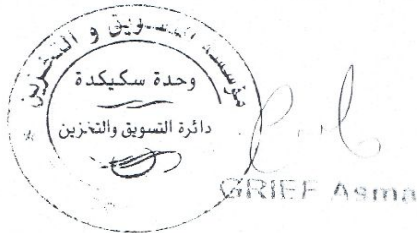 مؤسسة التسويق و التخزين
وحدة سكيكدة
دائرة التسويق والتخزين
GRIEF Asma